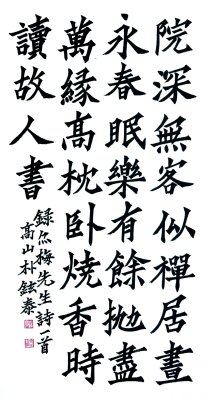 院深無客似禪居晝
永春眠樂有餘抛盡
萬緣高枕卧燒香時
讀故人書
錄梅先生詩一首
高山朴鉉泰